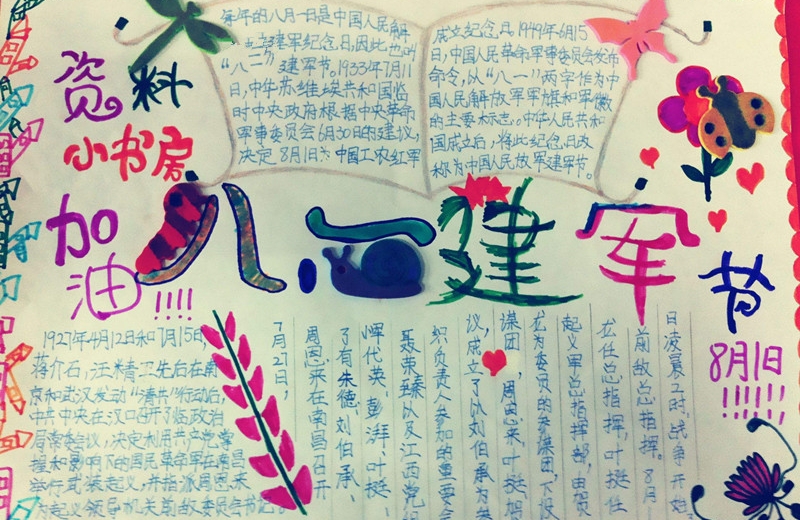 资料
小书房
加油!!!!
每年的八月一日是中国人民解
建军纪念日,因此也叫
“八一”建军节。1933年7月11
日,中华苏维埃共和国临
时中央政府根据中央革命
军事委员会6月30日的建议,
决定8月1日为中国工农红军
成立纪念日。1949年6月15
日,中国人民革命军事委员会发布
命令,以“八一”两字作为中
国人民解放军军旗和军徽
的主要标志。中华人民共和
国成立后,将此纪念日改
称为中国人民放军建军节。
八一建军节
8月1日
!!!!!!
1927年4月12日和7月15日,
蒋介石,汪精卫先后在南
京和武汉发动“清共”行动后,
中共中央在汉口召开了临政治
局常委会议,决定利用共产党掌
握和影响下的国民革命军在南昌
举行武装起义,并指派周恩来
为起义领导机关前敌委员会书记。
7月27日,
周恩来在南昌召开
了有朱德、刘伯承、
恽代英、彭湃、叶挺、
聂荣臻以及江西党组
织负责人参加的重要会
议,成立了以刘伯承为参
谋团,周恩来、叶挺、贺
龙为委员的参谋团,下设
起义军总指挥部,由贺
龙任总指挥,叶挺任
前敌总指挥。8月1
日凌晨2时,战争开始